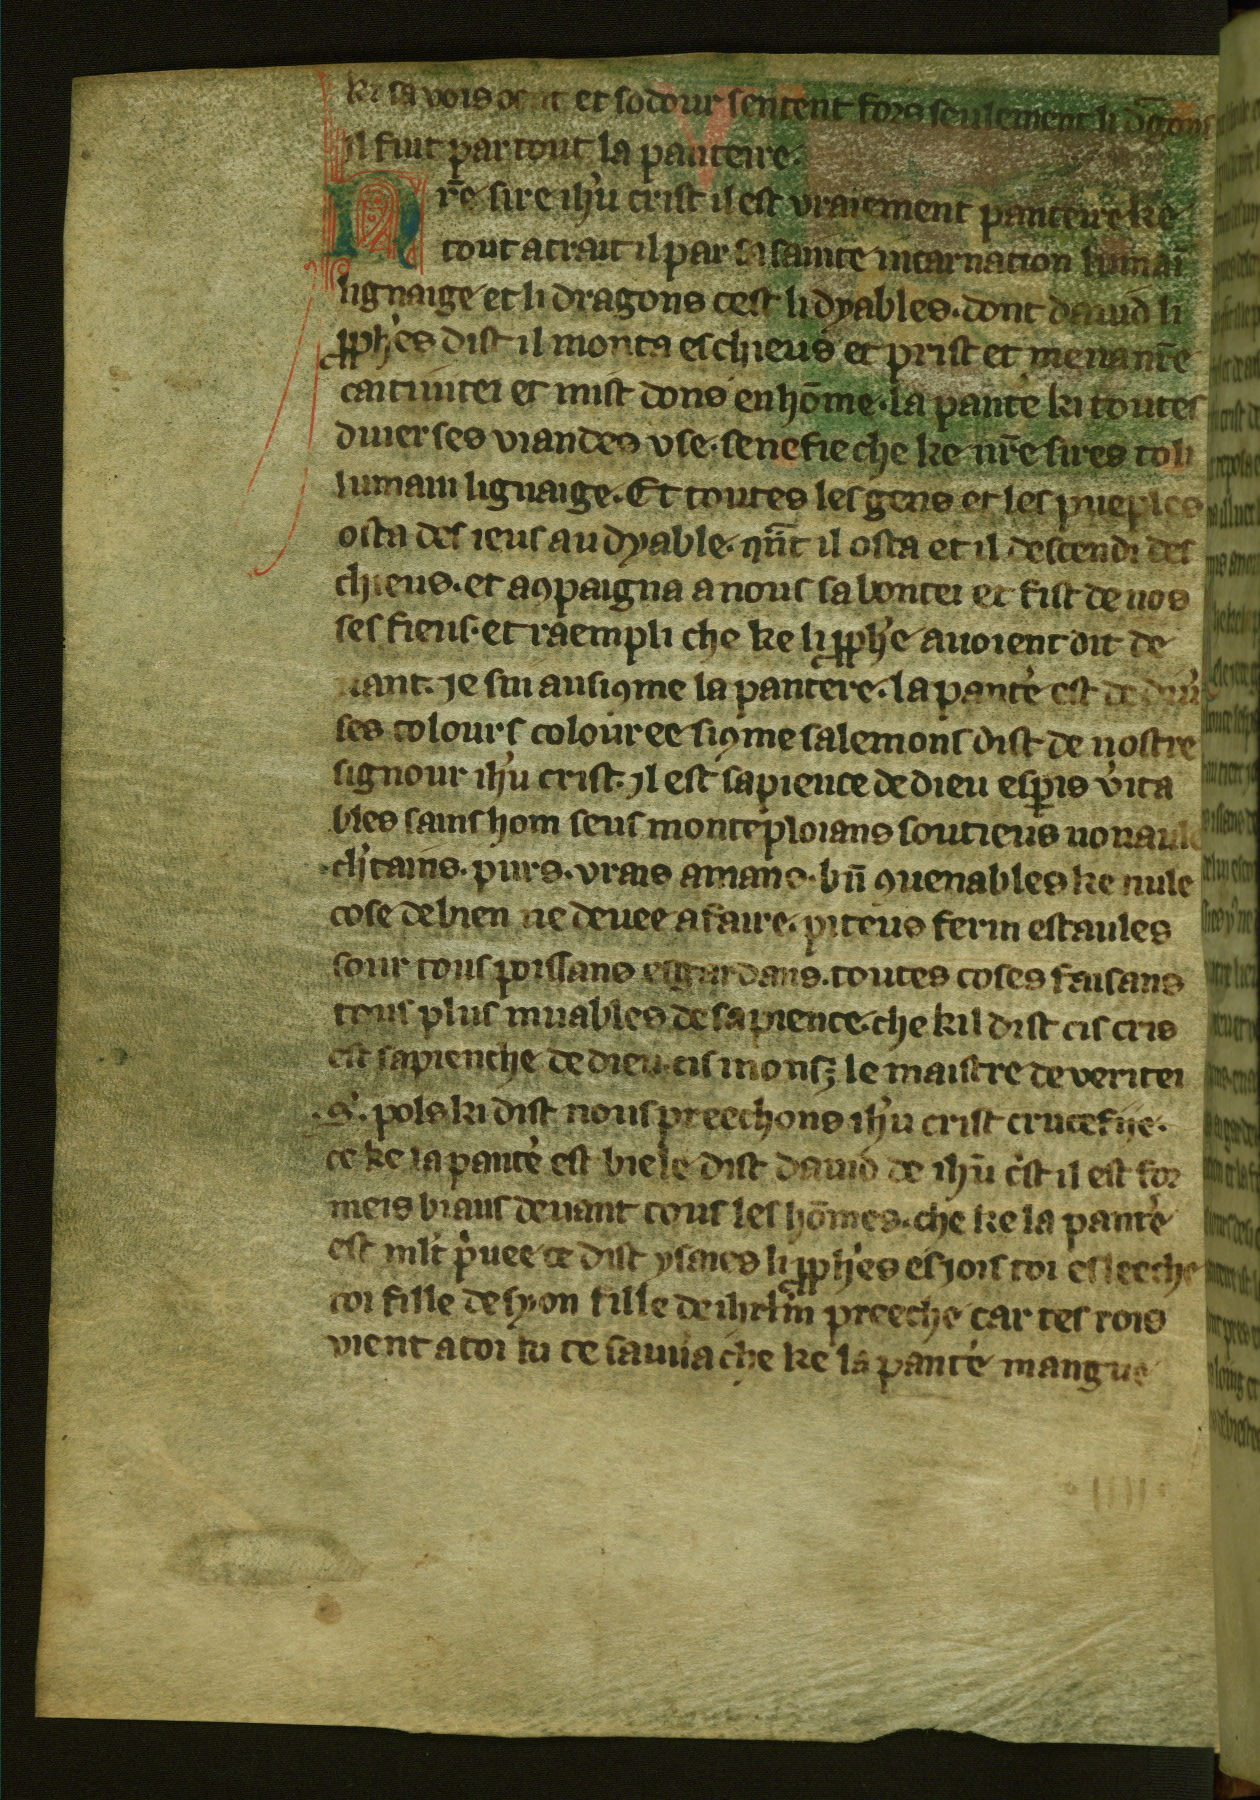 ki sa vois oent et sodour sentent fors seulement li dᵃgons
il fiut par tout la panteire.
Nr̄e sire ih'u crist il est vraiement panteire ke
tout atrait il par sa sainte incarnation lumaī
lignaige et li dragons cest li dyables. dont dauid li
pph'es dist il monta es chieus et prist et mena nr̄e
caitiuitei et mist dons en hōme. la pant'e ki toutes
diuerses viandes vse. senefie che ke nr̄e sires toli
lumain lignaige. Et toutes les gens et les pueples
osta des ieus au dyable. qn̄t il osta et il descendi des
chieus. et a9paigna a nous sa bontei et fist de nos
ses fieus. et raempli che ke li pph'e auoient dit de
uant. je sui ausi 9me la pantere. la pant'e est de diu'
ses colours colouree si 9me salemons dist de nostre
signour ih'u crist. il est sapience de dieu esp̄is v'ita
bles sains hom seus monteploians soutieus uonaule
ch'tains. purs. vrais amans. bn̄ 9uenables ke nule
cose de bien ne deuee a faire. piteus ferm estaules
sour tous poissans esgardans. toutes coses faisans
tous plus muables de sapience. che kil dist cis cris
est sapienche de dieu. cis mons; le maistre de veritei
.S'. pols ki dist nous preechons ih'u crist crucefije.
ce ke la pant'e est biele dist dauid de ih'u c'st il est for
meis biaus deuant tous les hōmes. che ke la pant'e
est ml't p'uee ce dist ysaies li pph'es esjois toi esleeche
toi fille de syon fille de ihrl'm preeche car tes rois
vient a toi ki te sauua che ke la pant'e mangue
. iiii .